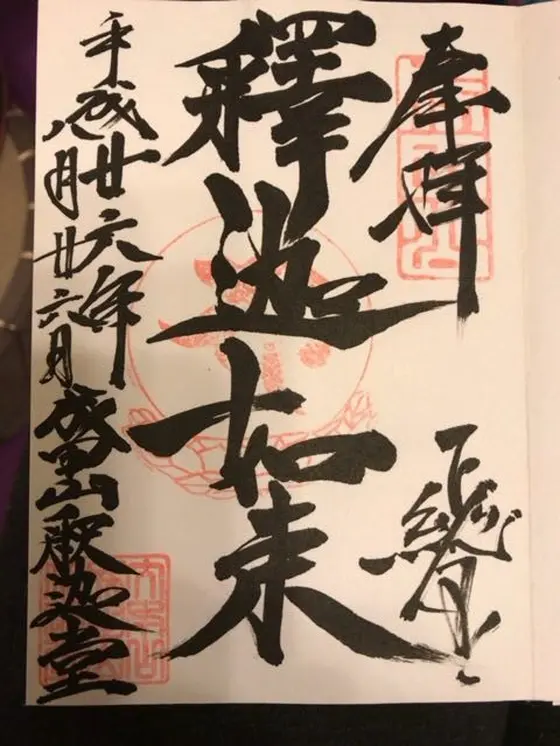 奉拝 下総國
釋迦如来
平成廿六年
八月廿六日
成田山釈迦堂